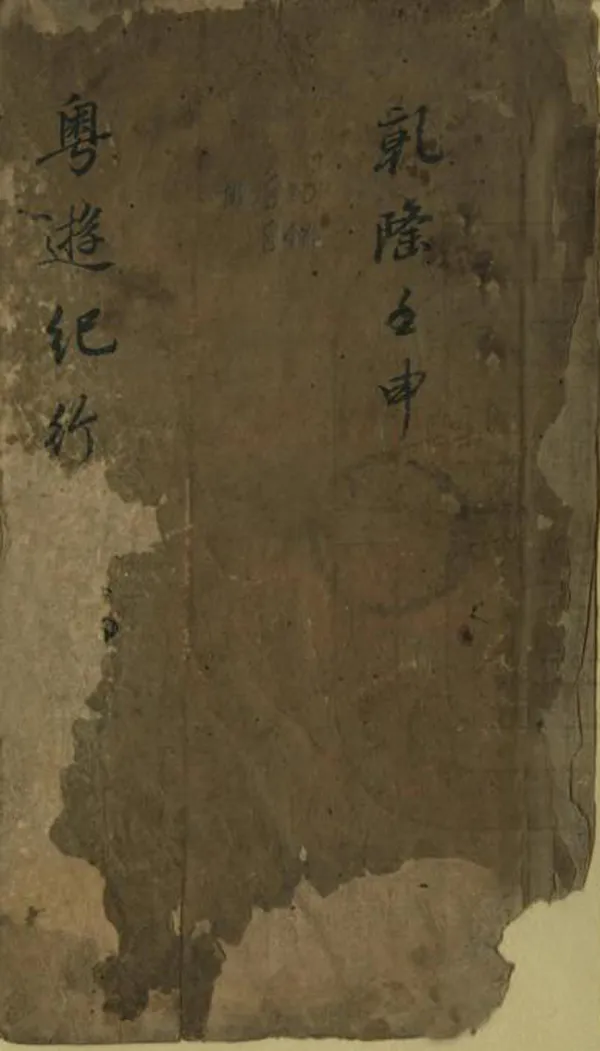 乾隆壬申
粵遊紀行